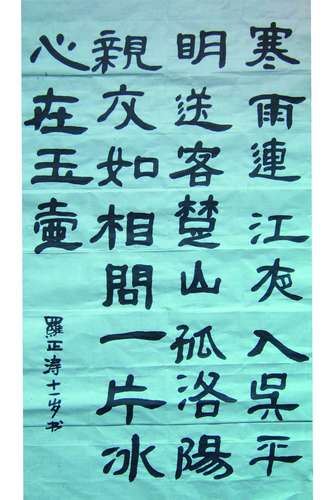 寒雨連江夜入吳平
明送客楚山孤洛陽
親友如相問一片冰
心在玉壺
羅正涛十一岁书